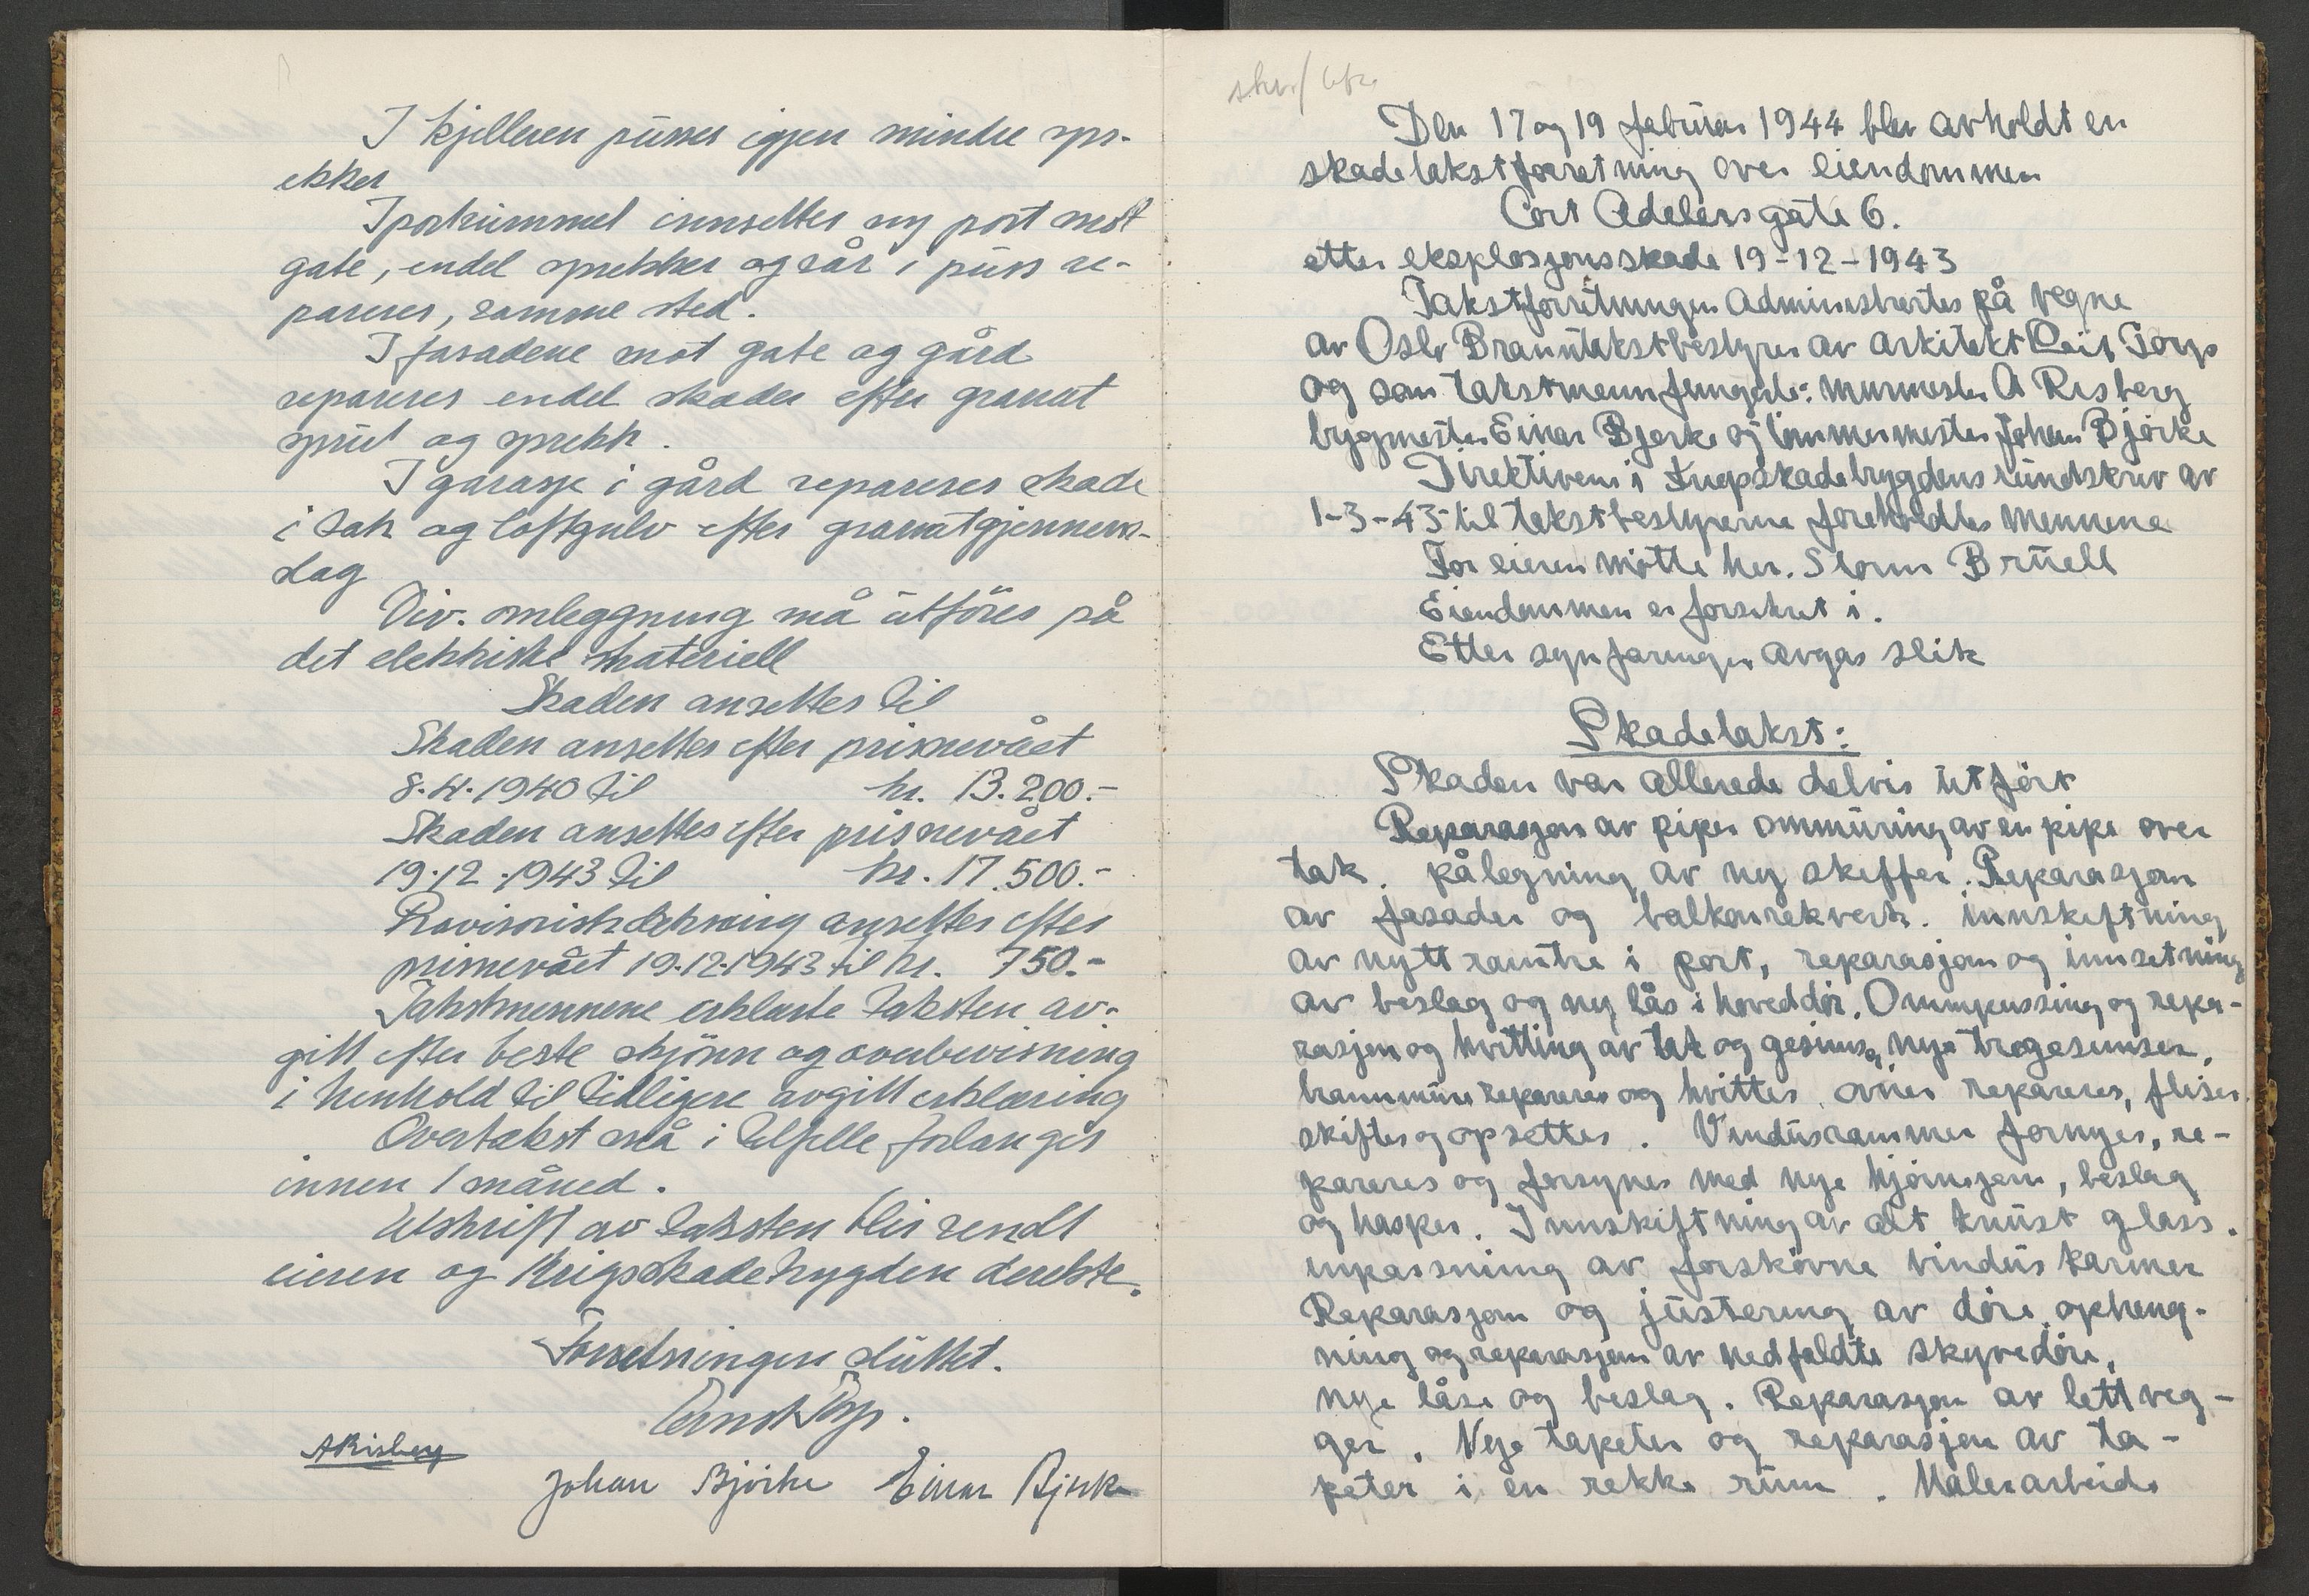 I kjelleren pusses igjen mindre spr-
ekker
I portrummet innsettes ny port mot
gate, endel sprekker og sår i puss re-
pareres, samme sted.
I fasadene mot gate og gård
repareres endel skader efter granat
sprut og sprekk.
I garasje i gård repareres skade
i tak og loftgulv efter granatgjennem-
slag
Div. omleggning må utföres på
det elektriske materiell
Skaden ansettes til
Skaden ansettes efter prisnevået
8.4.1940 til kr. 13.200.-
Skaden ansettes efter prisnevået
19.12.1943 til kr. 17.500.-
Provisorisk dekning ansettes efter
prisnevået 19.12.1943 til kr. 750.-
Takstmennene erklærte taksten av-
gitt efter beste skjönn og overbevisning
i henhold til tidligere avgitt erklæring
Overtakst må i tilfelle forlanges
innen 1 måned.
Utskrift av taksten blir sendt
eieren og Krigsskadetrygden derekte.
Forretningen sluttet.
Torp.
A Risberg
Johan Björke Einar Bjerke
skr./
Den 17 og 19 februar 1944 blev avholdt en
skadetakstforretning over eiendommen
Cort Adelersgate 6.
etter eksplosjonsskade 19-12-1943
Takstforretningen administrertes på vegne
av Oslo Branntakstbestyrer av arkitekt Leif Torp
og som takstmenn fungerte: murmester A Risberg
bygmester Einar Bjerke og tömmermester Johan Björke
Direktivene i Krigsskadetrygdens rundskriv av
1-3-43 til takstbestyrerne foreholdtes mennene
For eieren mötte her. Storm Brüell
Eiendommen er forsikret i.
Etter synfaringen avgas slik
Skadetakst:
Skaden var allerede delvis utfört
Reparasjon av piper ommuring av en pipe over
tak. pålegning av ny skiffer. Reparasjon
av fasader og balkonrekverk. innskiftning
av nytt ramtre i port, reparasjon og innsetning
av beslag og ny lås i hoveddör. Ompussing og repa-
rasjon og hvitting av tak og gesimser, nye tregesimser.
brannmurer repareres og hvittes. ovner repareres, fliser
skiftes og opsettes. Vindusrammer fornyes, re-
pareres og forsynes med nye hjörnejern, beslag
og hasper. Innskiftning av alt knust glass.
innpassning av forskövne vindus karmer
Reparasjon og justering av döre, opheng-
ning og reparasjon av nedfaldte skyvedöre,
nye låse og beslag. Reparasjon av lettveg-
ger. Nye tapeter og reparasjon av ta-
peter i en rekke rum. Malerarbeide